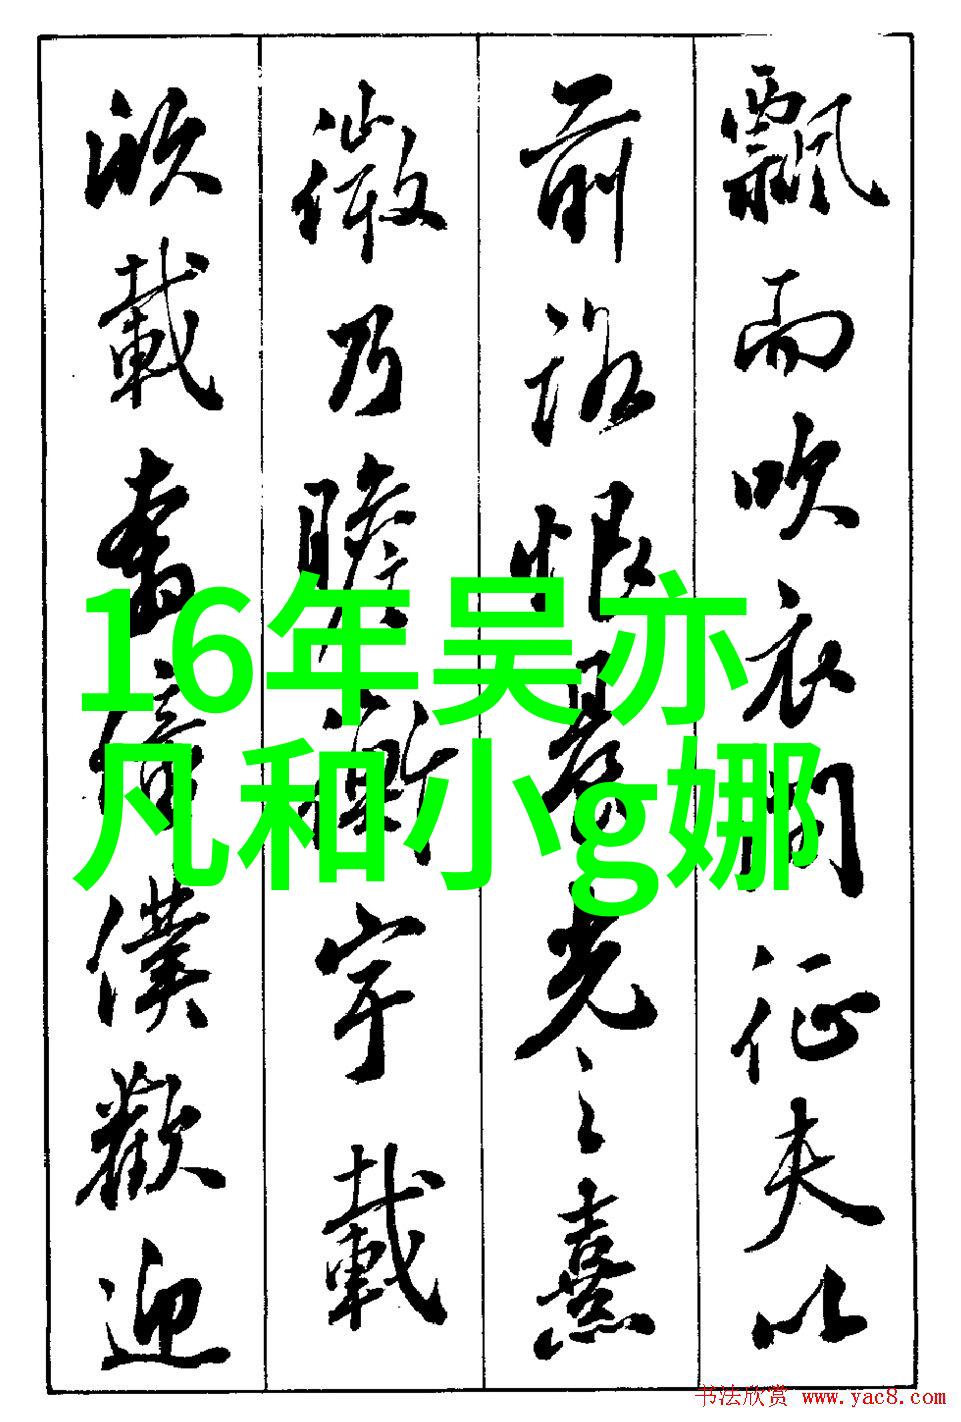 飄而吹衣問征夫以
前路恨晨光之熹
微乃瞻衡宇載
欣載奔僮僕歡迎
16年吴亦
凡和小g娜
书法欣赏 www.yac8.com